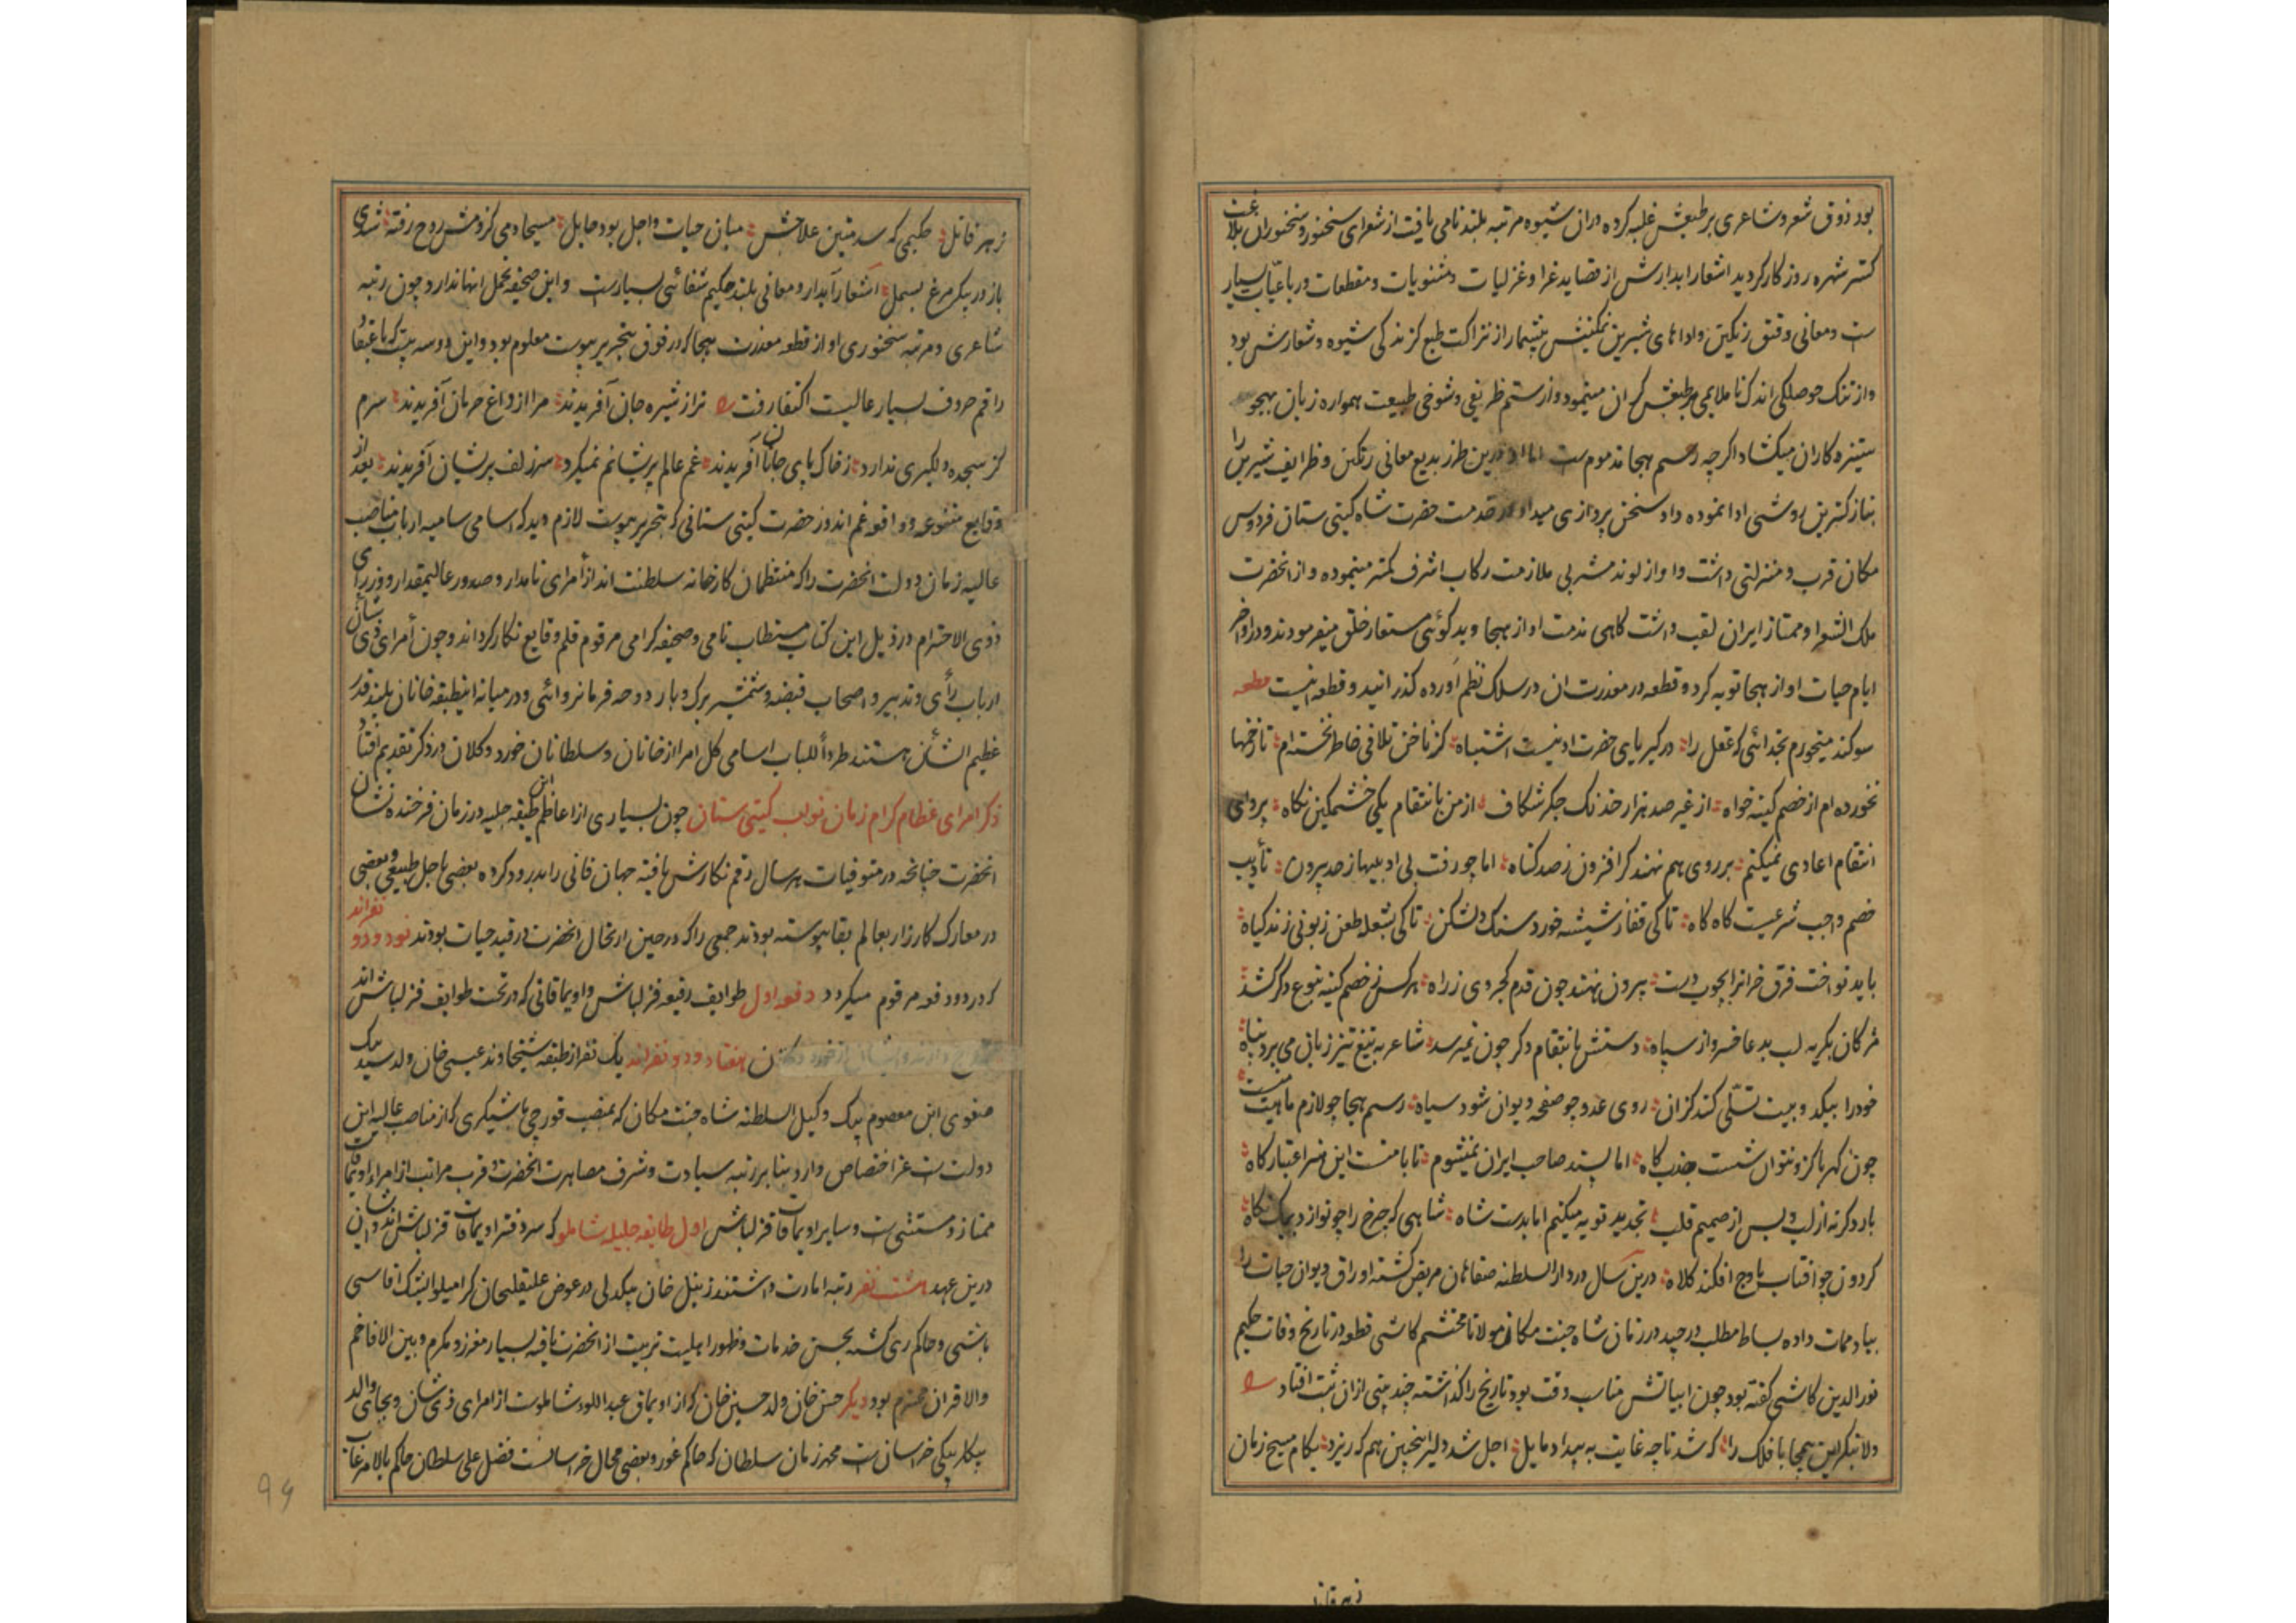 بود ذوق شعر و شاعری بر طبعش غلبه کرده دران شیوه مرتبه بلند نامی یافت از شعرای سخنور و سخنوران بلاغت
کستر شهره روزکار کردید اشعار ابدارش از قصاید غرا و غزلیات و مثنویات و مقطعات و رباعیات بسیار
ست و معانی دقیق رنکین و اداهای شیرین نمکینش بیشمار از نزاکت طبع کزندکی شیوه و شعارش بود
و از تنک حوصلکی اندک ناملایمی بر طبعش کران مینمود و از ستم ظریفی و شوخی طبیعت همواره زبان بهجو
ستیزه کاران میکشاد اکرچه رسم هجا مذموم ست اما او درین طرز بدیع معانی رنکین و ظرایف شیرین را
بنازکترین روشی ادا نموده داد سخن پردازی میداد در خدمت حضرت شاه کیتی ستان فردوس
مکان قرب و منزلتی داشت و او از لوند مشربی ملازمت رکاب اشرف کمتر مینموده و از انحضرت
ملک الشعرا و ممتاز ایران لقب داشت کاهی مذمت او از هجا و بدکوئی مستعار خلق میفرمودند و در اواخر
ایام حیات او از هجا توبه کرد و قطعه در معذرت ان در سلک نظم آورده کذرانید و قطعه اینست قطعه
سوکند میخورم بخدائی که عقل را در کبریای حضرت او نیست اشتباه کز ناخن تلافی خاطر نخسته ام تا زخمها
نخورده ام از خصم کینه خواه از غیر صد هزار خدنک جکر شکاف از من بانتقام یکی خشمکین نکاه پروای
انتقام اعادی نمیکنم بر روی هم نهند کر افزون ز صد کناه اما چو رفت بی ادبیها ز حد برون تأدیب
خصم واجب شرعیت کاه کاه تا کی قفاز شیشه خورد سنک دلشکن تا کی بشعله طعن زبونی زند کیاه
باید نواخت فرق خرانرا بچوب دست بیرون نهند چون قدم کجروی ز راه هر کس ز خصم کینه بنوع دکر کشد
مژکان بکریه لب بدعا خسرو از سپاه دستش بانتقام دکر چون نمیرسد شاعر به تیغ تیز زبان می برد پناه
خود را بیکدو بیت تسلّی کند کزان روی عدو چو صفحه دیوان شود سیاه رسم هجا چو لازم ماهیت منست
چون کهربا کزو نتوان شست جذب کاه اما پسند صاحب ایران نمیشوم تا با منست این هنر اعتبار کاه
بار دکر نه از لب و بس از صمیم قلب تجدید توبه میکنم اما بدست شاه شاهی که چرخ را چو نوازد بیک نکاه
کردون چو افتاب باوج افکند کلاه درین سال در دار السلطنه صفاهان مریض کشته اوراق دیوان حیات را
بباد ممات داده بساط مطلب درچید در زمان شاه جنت مکان مولانا محتشم کاشی قطعه در تاریخ وفات حکیم
نور الدین کاشی کفته بود چون ابیاتش مناسب وقت بود تاریخ را کذاشته چند بیتی ازان ثبت افتاد
دلا بنکر این بیمحابا فلک را که شد تا چه غایت به بیداد مایل اجل شد دلیر اینچنین هم که ریزد بکام مسیح زمان
زهر قاتل
زهر قاتل حکیمی که سد متین علاجش میان حیات و اجل بود حایل مسیحا دمی کز دمش روح رفته شدی
باز در پیکر مرغ بسمل اشعار آبدار و معانی بلند حکیم شفائی بسیارست و این صحیفه تحمل انها ندارد چون رتبه
شاعری و مرتبه سخنوری او از قطعه معذرت هجا که در فوق بتحریر پیوست معلوم بود و این دو سه بیت که باعتقاد
راقم حروف بسیار عالیست اکتفا رفت ترا از شیره جان آفریدند مرا از داغ حرمان آفریدند سرم
کز سجده دلکیری ندارد ز خاک پای جانان آفریدند غم عالم پریشانم نمیکرد سر زلف پریشان آفریدند بعد از
وقایع متنوعه و واقعه غم اندوز حضرت کیتی ستانی که بتحریر پیوست لازم دید که اسامی سامیه ارباب مناصب
عالیه زمان دولت انحضرت را که منتظمان کارخانه سلطنت اند از أمرای نامدار و صدور عالیمقدار و وزرای
ذوی الاحترام در ذیل این کتاب مستطاب نامی و صحیفه کرامی مرقوم قلم وقایع نکار کرداند و چون أمرای ذی شأن
ارباب رأی و تدبیر و اصحاب قبضه و شمشیر برک و بار دوحه فرمانروائی و در میانه اینطبقه خانان بلند قدر
عظیم الشأن هستند طرداً للباب اسامی کل امرا از خانان و سلطانان خورد و کلان در ذکر تقدیم افتاد
ذکر امرای عظام کرام زمان نواب کیتی ستان چون بسیاری از اعاظم این طبقه جلیه در زمان فرخنده نشان
انحضرت چنانچه در متوفیات هر سال رقم نکارش یافته جهان فانی را بدرود کرده بعضی باجل طبیعی و بعضی
در معارک کارزار بعالم بقا پیوسته بودند جمعی را که در حین ارتحال انحضرت در قید حیات بودند نود و دو نفر اند
که در دو دفعه مرقوم میکردد دفعه اول طوایف رفیعه قزلباش و اویماقاتی که در تحت طوایف قزلباش اند
هفتاد و دو نفر اند یک نفر از طبقه شیخاوند عیسی خان ولد سید بیک
صفوی ابن معصوم بیک وکیل السلطنه شاه جنت مکان که بمنصب قورچی باشیکری که از مناصب عالیه این
دولت ست عز اختصاص دارد بنا بر رتبه سیادت و شرف مصاهرت انحضرت و قرب مراتب از امراء اویماقات
ممتاز و مستثنی ست و سایر اویماقات قزلباش اول طایفه جلیله شاملو که سر دفتر اویماقات قزلباش اند و از ایشان
درین عهد هشت نفر رتبه امارت داشتند زینل خان بیکدلی در عوض علیقلیخان کرامیلو ایشک اقاسی
باشی و حاکم ری کشته بحسن خدمات و ظهور اهلیت تربیت از انحضرت یافته بسیار معزز و مکرم و بین الافاخم
والاقران محترم بود دیکر حسن خان ولد حسین خان که از اویماق عبد اللو شاملوست از امرای ذی شان و بجای والد
بیکلر بیکی خراسان ست محمد زمان سلطان که حاکم غور و بعضی محال خراسانست فضل علی سلطان حاکم بالا مرغاب
۹۴